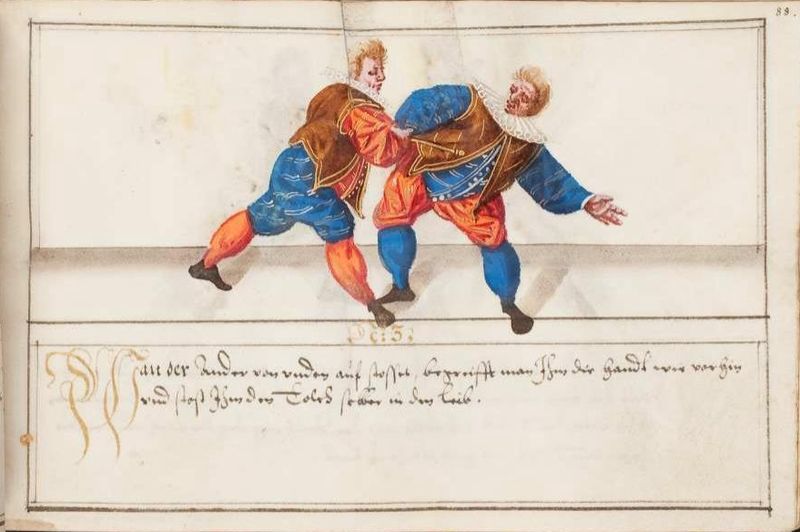 88.
N: 3:
Wan der Ander von unden auf stosset, begreifft man Ihm die handt wie vorhin
und stost Ihm den Tolch selber in den leib.